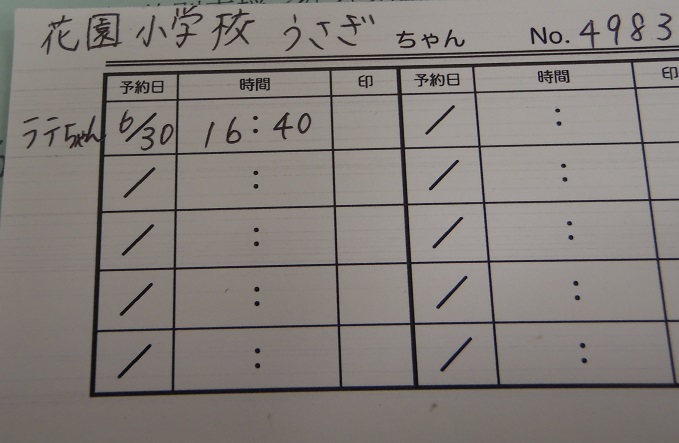 花園小学校 うさぎ ちゃん No. 4983
予約日 時間 印 予約日 時間 印
ラテちゃん 6/30 16:40 / :
/ : / :
/ : / :
/ : / :
/ : / :